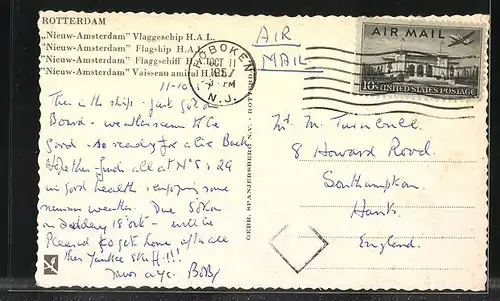 ROTTERDAM
„Nieuw-Amsterdam" Vlaggeschip H.A.L.
"Nieuw-Amsterdam" Flagship H.A.L.
„Nieuw-Amsterdam" Flaggschiff H.A.L.
"Nieuw-Amsterdam" Vaisseau amiral H.A.L.
AIR
MAIL
HOBOKEN
OCT 11
PM
1957
N.J.
AIR MAIL
10¢ UNITED STATES POSTAGE
11-10
This is the ship - just got on
Board - weather seems to be
good - so ready for a live Back
Hope this finds all at Nos 8 & 29
in good health & enjoying some
weather. Due
on 18 Oct - will be
Pleased to get home after all
this Yankee stuff!!!
Yours aye. BoB
GEBR. SPANJERSBERG N.V., ROTTERDAM
Mr. M. Turnbull.
8 Howard Road.
Southampton
Hants.
England.